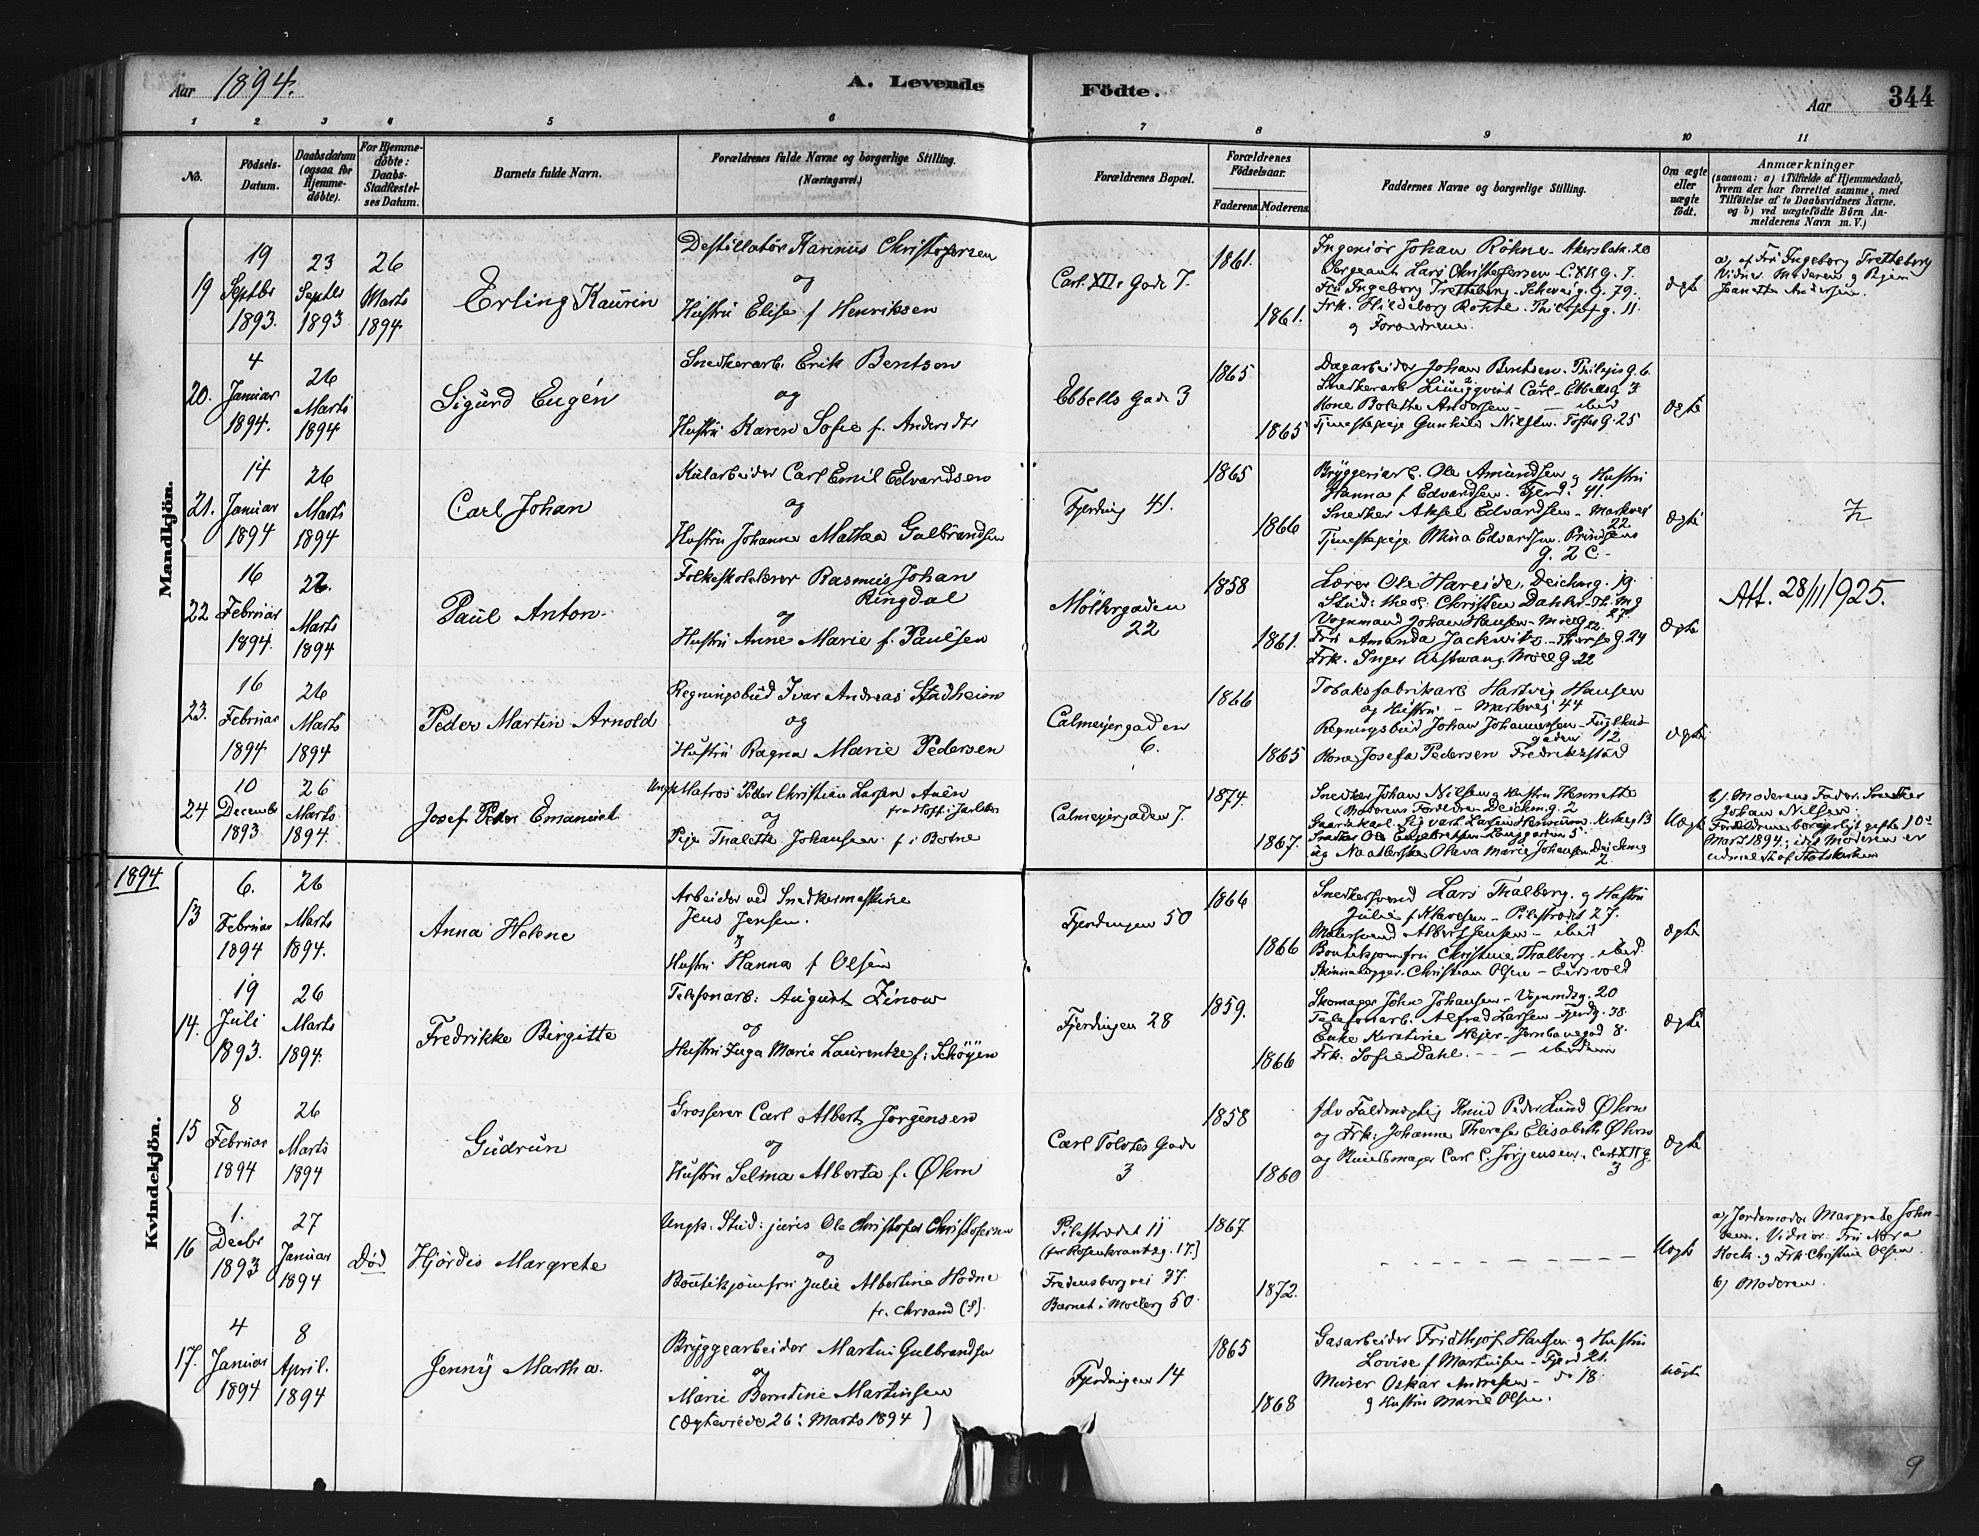 Aar 1894. A. Levende Födte. Aar 344
1 2 3 4 5 6 7 8 9 10 11
No.
Födsels-Datum.
Daabsdatum (ogsaa for Hjemme-döbte).
For Hjemme-döbte: Daabs-Stadfæstel-ses Datum.
Barnets fulde Navn.
Forældrenes fulde Navne og borgerlige Stilling. (Næringsvei.)
Forældrenes Bopæl.
Forældrenes Födselsaar.
Faderens. Moderens.
Faddernes Navne og borgerlige Stilling.
Om ægte eller uægte födt.
Anmærkninger
(saasom: a) i Tilfælde af Hjemmedaab,
hvem der har forrettet samme, med
Tilföielse af to Daabsvidners Navne.
og b) ved uægtefödte Börn An-
melderens Navn m. V.)
Mandkjön.
19
19 Septbr 1893.
23 Septbr 1893
26 Marts 1894
Erling Kaurin
Destillatör Karinius Christofersen
og
Hustru Elise f Henriksen
Carl XII's Gade 7.
1861.
1861.
Ingeniör Johan Röhne
Sergeant Lars Christofersen
Fru Ingeborg Tretteberg
Frk. Hildeborg
og Forældrene
ægte
a) af Fru Ingeborg Tretteberg
Vidner Moderen og
Jeanette Andersen.
20.
4 Januar 1894.
26 Marts 1894
Sigurd Eugén
Snedkerarb. Erik Bentsen
og
Hustru Karen Sofie f. Andersdtr
Ebbells Gade 3
1865
1865
Dagarbeider Johan Bentsen
Snedkerarb Carl Ebbellsg 3
Kone Bolette Andersen - ibid
Tjenestepige Gunhild Nilsen. Toftesg. 25
ægte
21.
14 Januar 1894
26 Marts 1894
Carl Johan
Kularbeider Carl Emil Edvardsen
og
Hustru Johanne Mathea Gulbrandsen
Fjerding 41.
1865
1866
Bryggeriarb. Ole Amundsen og Hustru
Hanna f Edvardsen. Fjerdg. 41.
Snedker Aksel Edvardsen - Markvei 22
Tjenestepige Mina Edvardsen. Prindsens
g. 2 C -
ægte
22
16 Februar 1894.
26. Marts 1894
Paul Anton
Folkeskolelærer Rasmus Johan
Ringdal
og
Hustru Anne Marie f. Paulsen
Möllergaden
22
1858
1861.
Lærer Ole Hareide. Deichmg. 19
Stud: theol: Christen
Vognmand Johan Hansen - Möllg 22.
Fru Amanda Jackwitz - Theresesg. 24
Frk. Inger Möllg. 22
ægte
Att. 28/11/1925.
23.
16 Februar 1894
26 Marts 1894
Peder Martin Arnold
Regningsbud Ivar Andreas Stadheim
og
Hustru Ragna Marie Pedersen
Calmeyergaden
6.
1866
1865
Tobaksfabrikarb Hartvig Hansen
og Hustru - Markvej 44
Regningsbud Johan Johannessen
gaden 12
Kone Josefa Pedersen Fredrikstad
ægte
24
10 December 1893.
26 Marts 1894.
Josef Peder Emanuel
Ungk. Matros Peder Christian Larsen Auén
fra Hoff i Jarlsberg
og
Pige Thalette Johansen f. i Botne
Calmeyergaden 7.
1874.
1867.
Snedker Johan Nilsen og Hustru Henriette
(Moderens Forældre Deichm.g. 2
Snedker Ole Engebretsen
og Olava Marie Johansen Deichmg
2
Uægte
b) Moderens Fader Snedker
Johan Nilsen
Forældrene borgerligt gifte 10de
Marts 1894; idet Moderen er
udmeldt af Statskirken
1894
Kvindekjön.
13
6. Februar 1894
26 Marts 1894.
Anna Helene
Arbeider ved Snedkermaskine
Jens Jensen.
og
Hustru Hanna f Olsen
Fjerdingen 50
1866
1866
Snedkersvend Lars Thalberg og Hustru
Julie f - Pilestrædet 27.
Malersvend Albert Jensen - ibid
Boutikjomfru Christine Thalberg. ibid.
Christian Olsen - Eidsvold
ægte
14.
19 Juli 1893.
26 Marts 1894.
Fredrikke Birgitte
Telefonarb: August Zinow
og
Hustru Inga Marie Laurentze f. Schöyen
Fjerdingen 28
1859.
1866
Skomager John Johansen - Vognmdsg. 20
Telefonarb. Alfred Larsen - Fjerdg. 38.
Enke Kirstine Hejer - Jernbanegad 8.
Frk. Sofie Dahl. - - - ibidem
ægte
15
8 Februar 1894
26 Marts 1894
Gudrun
Grosserer Carl Albert Jörgensen
og
Hustru Selma Alberta f. Ökern
Carl Tolvtes Gade
3
1858
1860
Fuldmægtig Knud Peder Lund Økern
og Frk: Johanne Therese Elisabeth Økern
og Carl C. Jörgensen. Carl XII g.
3
ægte
16
1. Decbr 1893
27 Januar 1894
Död
Hjördis Margrete
Ungk: Stud: juris Ole Christofer Christofersen
og
Boutiksjomfru Julie Albertine Hodne
fr. Chrsand (S).
Pilestrædet 11
(før Rosenkrantzg. 17.)
Fredensborgvei 37.
Barnet i Möllerg 50.
1867.
1872.
Uægte
a) Jordemoder Margrete John-
sen. Vidner: Fru Nora
Hoch og Frk Christine Olsen.
b) Moderen.
17.
4 Januar 1894
8 April. 1894
Jenny Martha.
Bryggearbeider Martin Gulbrandsen
og
Marie Berntine Martinsen
(Ægteviede 26: Marts 1894)
Fjerdingen 14
1865
1868
Gasarbeider Fridthjof Hansen og Hustru
Lovise f Martinsen - Fjerd 21.
Murer Oskar Andresen - do 18.
og Hustru Marie Olsen.
uægte
9